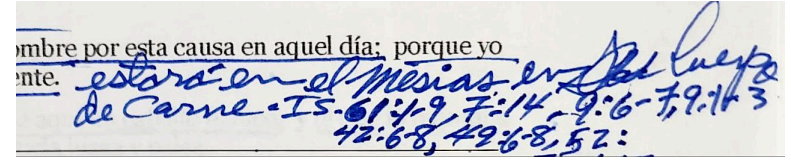 ombre por esta causa en aquel día; porque yo
ente. estará en el Mesias, en Cuerpo
de Carne - IS. 61:1-9, 7:14, 9:6-7, 9:1-3
42:6-8, 49:6-8, 52: